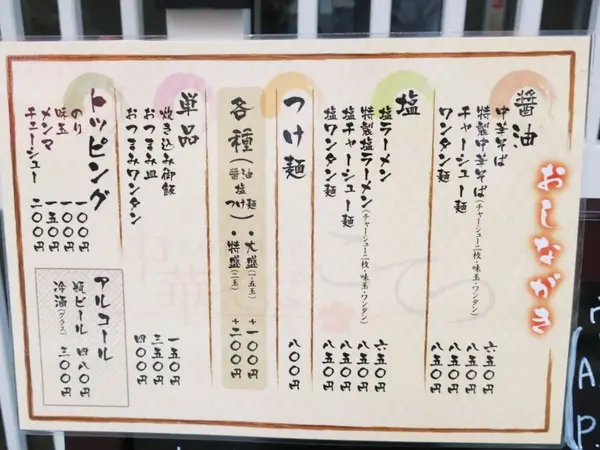 おしながき
醤油
中華そば 六五〇円
特製中華そば(チャーシュー二枚・味玉・ワンタン) 八五〇円
チャーシュー麺 八五〇円
ワンタン麺 八五〇円
塩
塩ラーメン 六五〇円
特製塩ラーメン(チャーシュー二枚・味玉・ワンタン) 八五〇円
塩チャーシュー麺 八五〇円
塩ワンタン麺 八五〇円
つけ麺 八〇〇円
各種(醤油 塩 つけ麺)
・大盛(一.五玉) +一〇〇円
・特盛(二玉) +二〇〇円
単品
炊き込み御飯 一五〇円
おつまみ皿 三五〇円
おつまみワンタン 四〇〇円
トッピング
のり 一〇〇円
味玉 一〇〇円
メンマ 一五〇円
チャーシュー 二〇〇円
アルコール
瓶ビール 四八〇円
冷酒(グラス) 三〇〇円
A.
P.